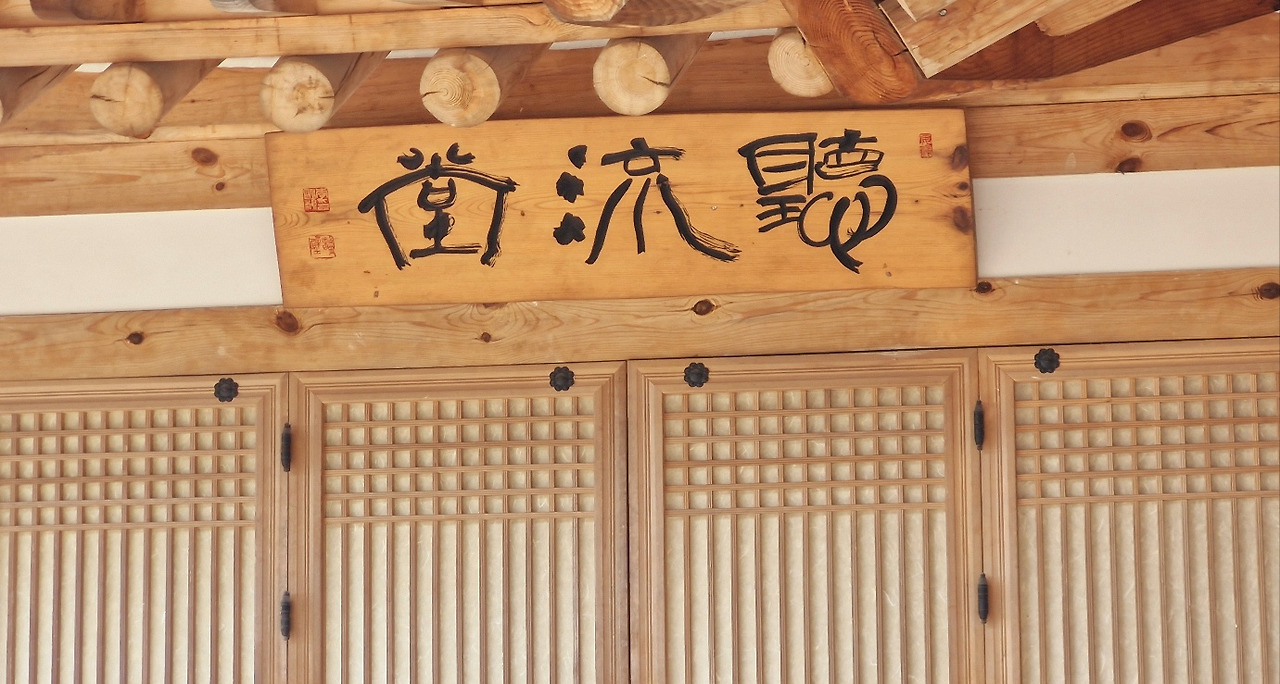 聽流堂